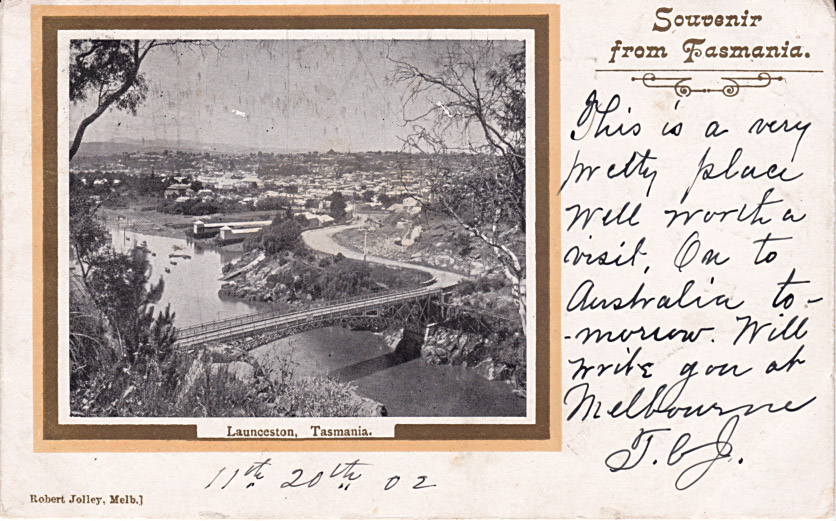 Souvenir
from Tasmania.
This is a very
pretty place
Well worth a
visit. On to
Australia to-
-morrow. Will
write you at
Melbourne
T.C.J.
Launceston, Tasmania.
11th 20th 02
Robert Jolley, Melb.]